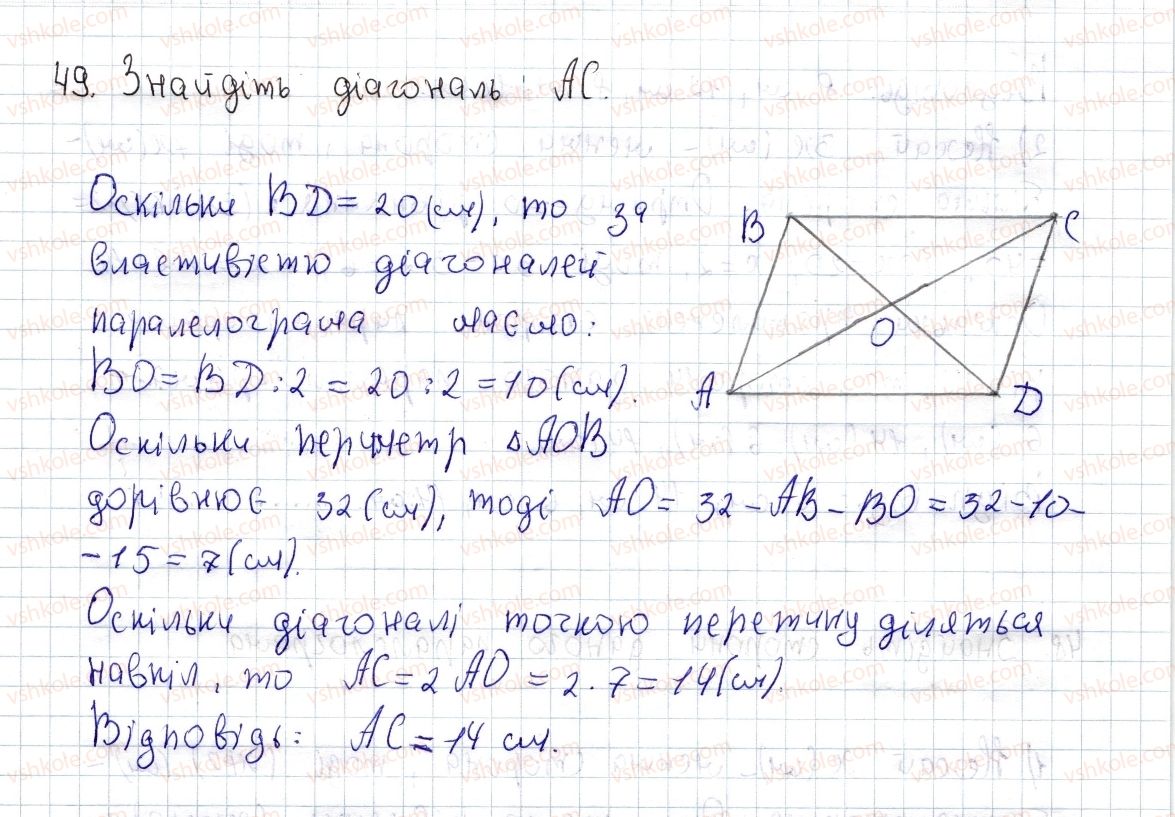 49. Знайдіть діагональ АС.
Оскільки BD = 20 (см), то за
властивістю діагоналей
паралелограма маємо:
BO = BD : 2 = 20 : 2 = 10 (см).
Оскільки периметр △AOB
дорівнює 32 (см), тоді AO = 32 - AB - BO = 32 - 10 -
- 15 = 7 (см).
Оскільки діагоналі точкою перетину діляться
навпіл, то AC = 2 AO = 2 · 7 = 14 (см).
Відповідь: AC = 14 см.
B
C
O
A
D
vshkole.com